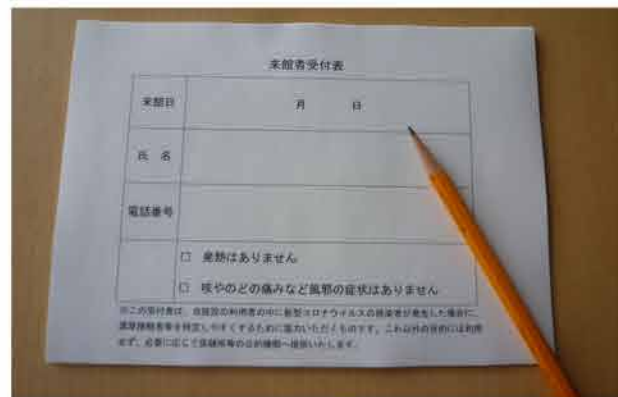 来館者受付表
来館日 月 日
氏 名
電話番号
□ 発熱はありません
□ 咳やのどの痛みなど風邪の症状はありません
※この受付表は、当施設の利用者の中に新型コロナウイルスの感染者が発生した場合に、
濃厚接触者等を特定しやすくするために協力いただくものです。これ以外の目的には利用
せず、必要に応じて保健所等の公的機関へ提供いたします。